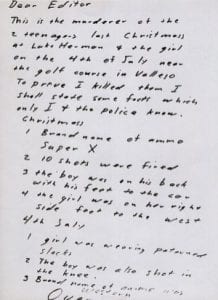 Dear Editor
This is the murderer of the
2 teenagers last Christmass
at Lake Herman & the girl
on the 4th of July near
the golf course in Vallejo
To prove I killed them I
shall state some facts which
only I & the police know.
Christmass
1 Brand name of ammo
Super X
2 10 shots were fired
3 the boy was on his back
with his feet to the car
4 the girl was on her right
side feet to the west
4th July
1 girl was wearing paterned
slacks
2 The boy was also shot in
the knee.
3 Brand name of ammo was
Western
Over